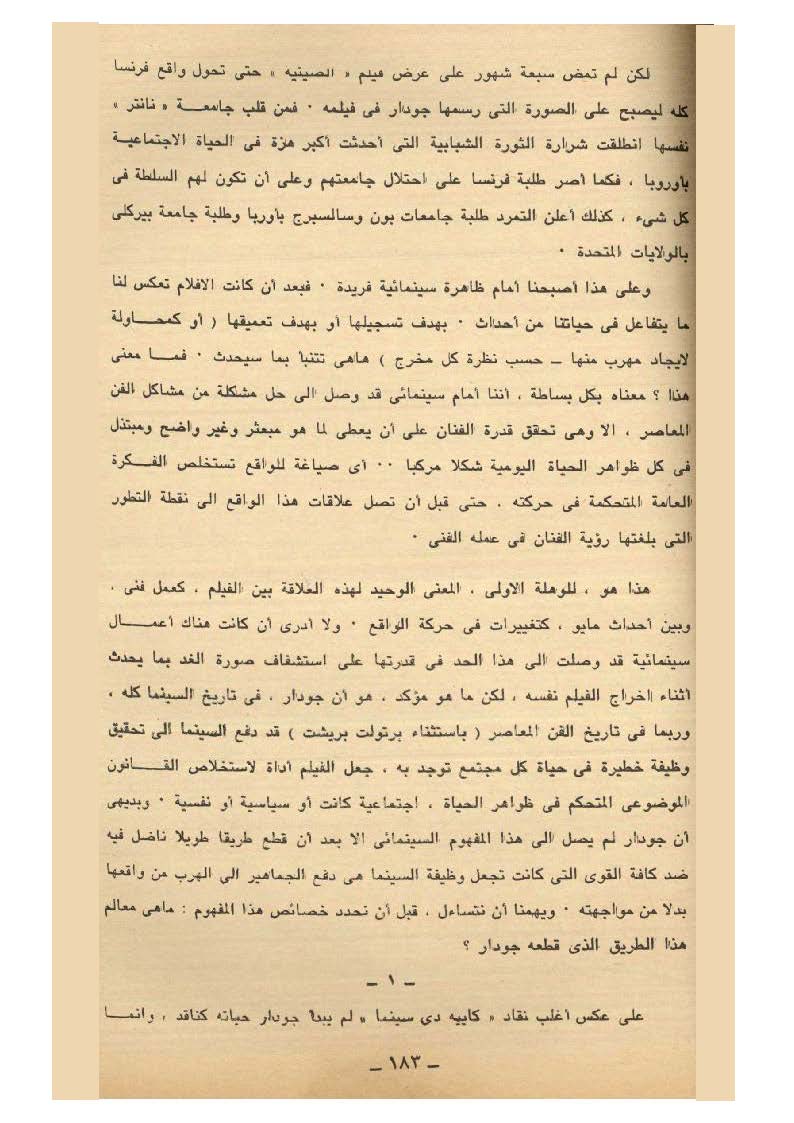 لكن لم تمض سبعة شهور على عرض فيلم « الصينيه » حتى تحول واقع فرنسا
كله ليصبح على الصورة التى رسمها جودار فى فيلمه ٠ فمن قلب جامعـــة « نانتر »
نفسها انطلقت شرارة الثورة الشبابية التى أحدثت أكبر هزة فى الحياة الاجتماعيـة
بأوروبا ، فكما أصر طلبة فرنسا على احتلال جامعتهم وعلى أن تكون لهم السلطة فى
كل شىء ، كذلك أعلن التمرد طلبة جامعات بون وسالسبرج بأوربا وطلبة جامعة بيركلى
بالولايات المتحدة ٠
وعلى هذا أصبحنا أمام ظاهرة سينمائية فريدة ٠ فبعد أن كانت الافلام تعكس لنا
ما يتفاعل فى حياتنا من أحداث ٠ بهدف تسجيلها أو بهدف تعميقها ( أو كمحـــاولة
لايجاد مهرب منها ــ حسب نظرة كل مخرج ) هاهى تتنبأ بما سيحدث ٠ فمـــا معنى
هذا ؟ معناه بكل بساطة ، أننا أمام سينمائى قد وصل الى حل مشكلة من مشاكل الفن
المعاصر ، الا وهى تحقق قدرة الفنان على أن يعطى لما هو مبعثر وغير واضح ومبتذل
فى كل ظواهر الحياة اليومية شكلا مركبا ٠٠ أى صياغة للواقع تستخلص الفــكرة
العامة المتحكمة فى حركته ، حتى قبل أن تصل علاقات هذا الواقع الى نقطة التطور
التى بلغتها رؤية الفنان فى عمله الفنى ٠
هذا هو ، للوهلة الاولى ، المعنى الوحيد لهذه العلاقة بين الفيلم ، كعمل فنى ،
وبين أحداث مايو ، كتغييرات فى حركة الواقع ٠ ولا أدرى أن كانت هناك أعمـــال
سينمائية قد وصلت الى هذا الحد فى قدرتها على استشفاف صورة الغد بما يحدث
أثناء اخراج الفيلم نفسه ، لكن ما هو مؤكد ، هو أن جودار ، فى تاريخ السينما كله ،
وربما فى تاريخ الفن المعاصر ( باستثناء برتولت بريشت ) قد دفع السينما الى تحقيق
وظيفة خطيرة فى حياة كل مجتمع توجد به ، جعل الفيلم أداة لاستخلاص القــــانون
الموضوعى المتحكم فى ظواهر الحياة ، اجتماعية كانت أو سياسية أو نفسية ٠ وبديهى
أن جودار لم يصل الى هذا المفهوم السينمائى الا بعد أن قطع طريقا طويلا ناضل فيه
ضد كافة القوى التى كانت تجعل وظيفة السينما هى دفع الجماهير الى الهرب من واقعها
بدلا من مواجهته ٠ ويهمنا أن نتساءل ، قبل أن نحدد خصائص هذا المفهوم : ماهى معالم
هذا الطريق الذى قطعه جودار ؟
ــ ١ ــ
على عكس أغلب نقاد « كاييه دى سينما » لم يبدأ جودار حياته كناقد ، وانمـــا
ــ ١٨٣ ــ